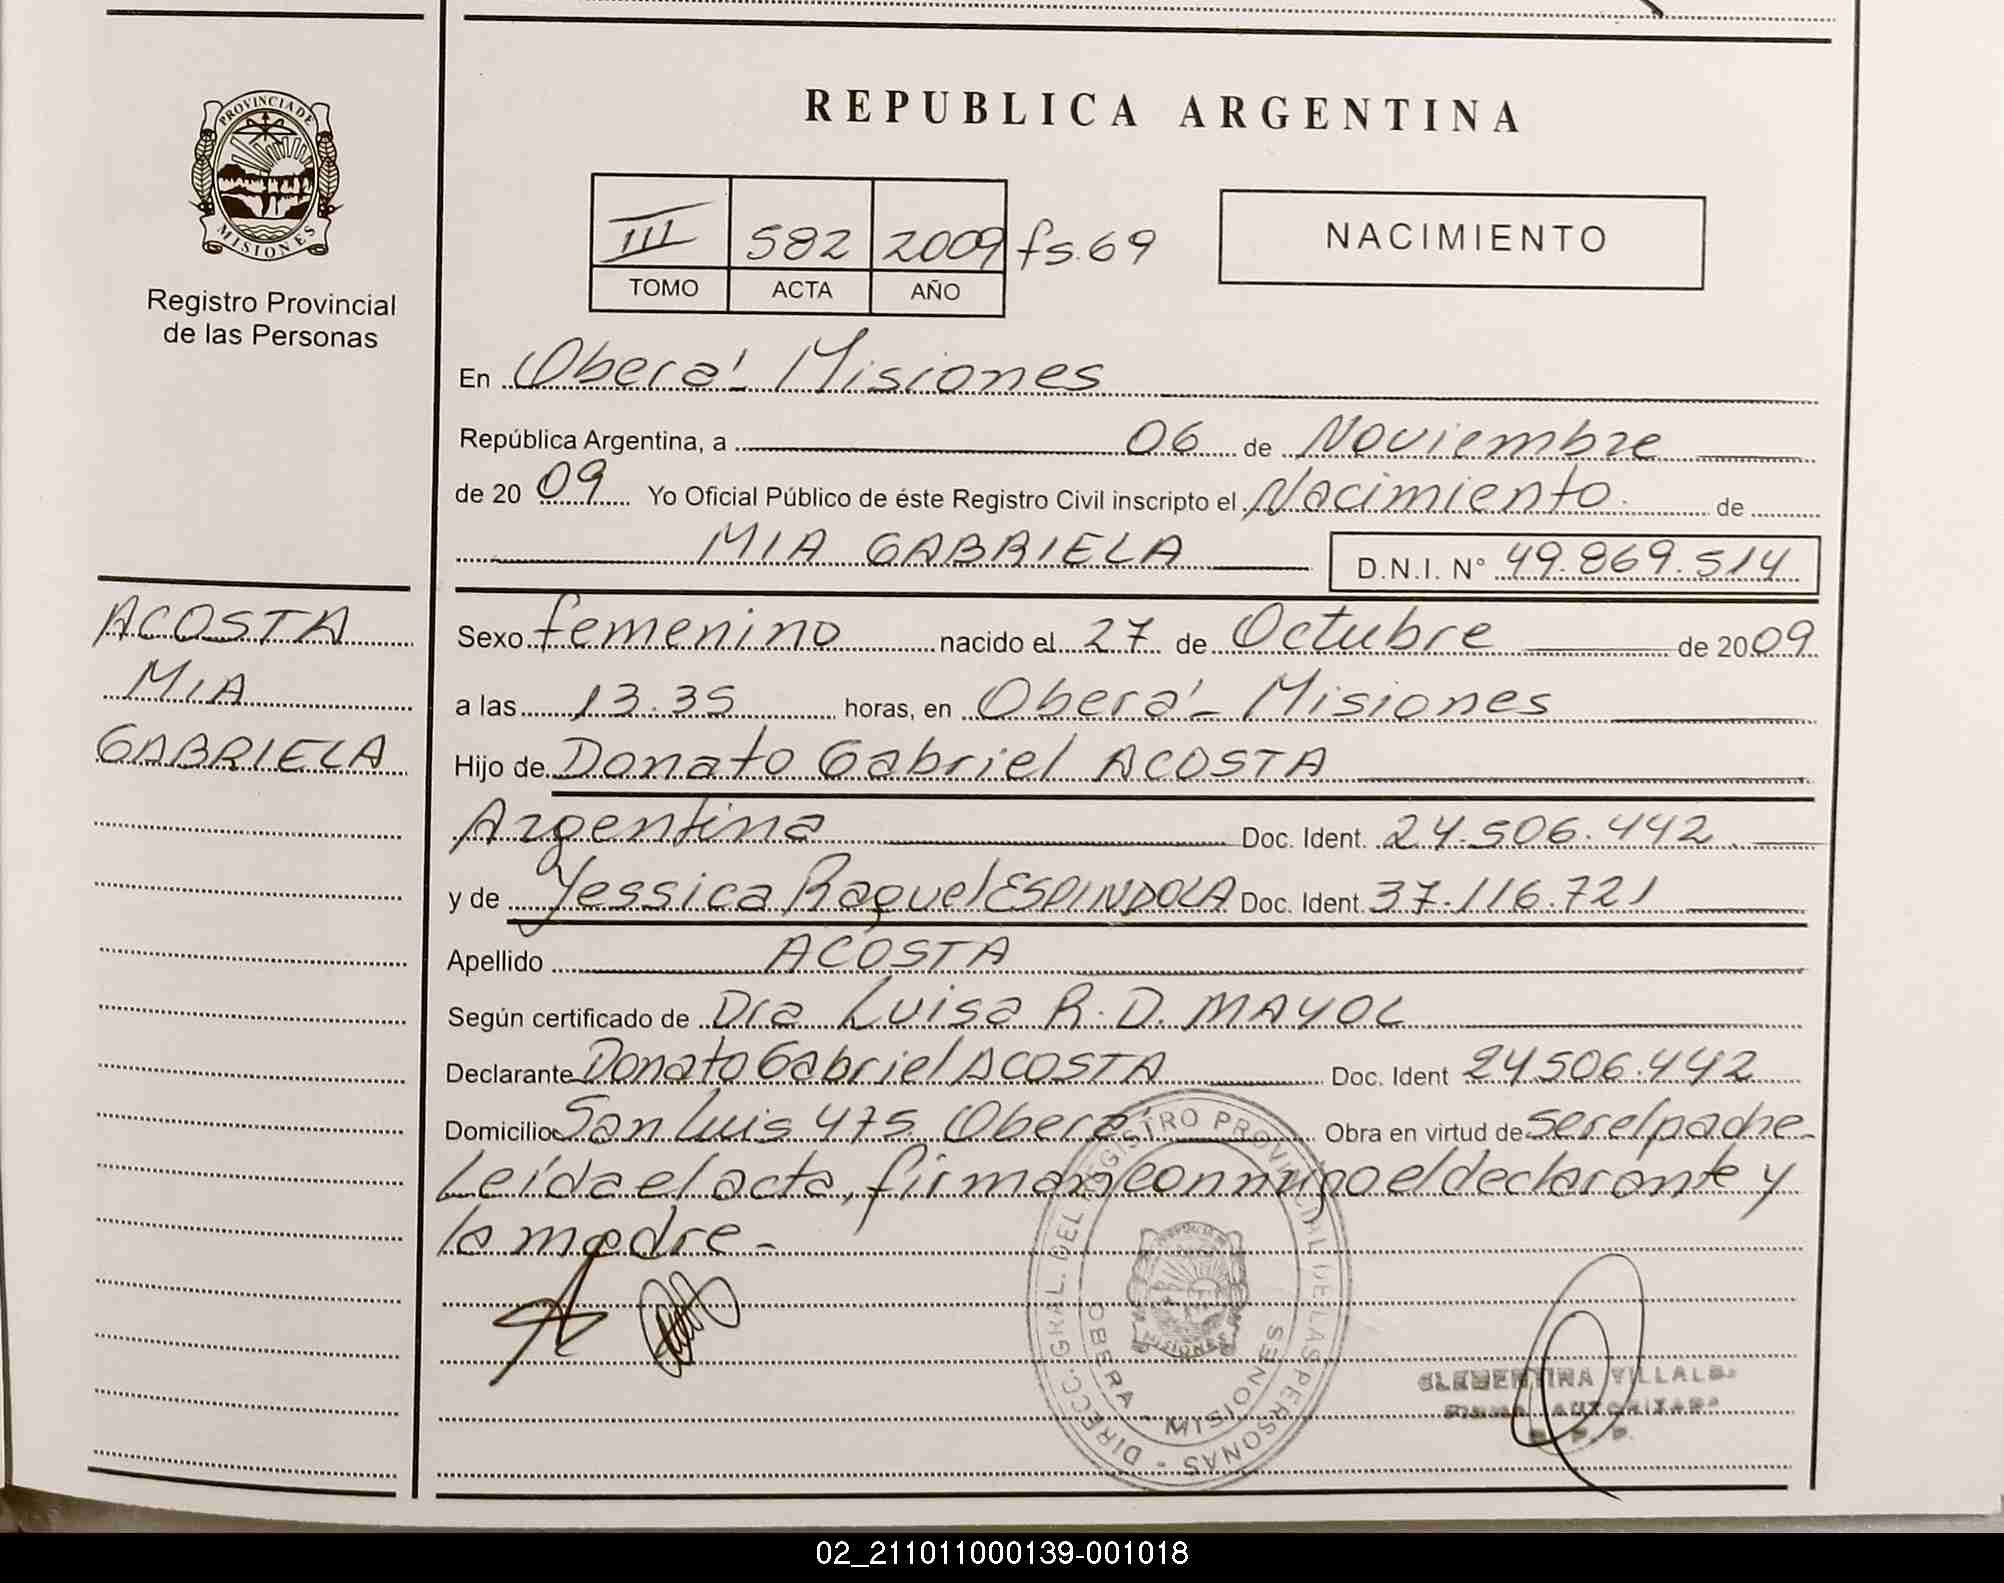 REPUBLICA ARGENTINA
PROVINCIA DE
MISIONES
Registro Provincial
de las Personas
III 582 2009 fs. 69
TOMO ACTA AÑO
NACIMIENTO
En Oberá - Misiones
República Argentina, a 06 de Noviembre
de 2009 Yo Oficial Público de éste Registro Civil inscripto el Nacimiento de
MIA GABRIELA D.N.I. N° 49.869.514
ACOSTA
MIA
GABRIELA
Sexo femenino nacido el 27 de Octubre de 2009
a las 13.35 horas, en Oberá - Misiones
Hijo de Donato Gabriel ACOSTA
Argentina Doc. Ident. 24.506.442
y de Yessica Raquel ESPINDOLA Doc. Ident. 37.116.721
Apellido ACOSTA
Según certificado de Dra Luisa R. D. MAYOL
Declarante Donato Gabriel ACOSTA Doc. Ident 24.506.442
Domicilio San Luis 475. Oberá Obra en virtud de ser el padre.
Leída el acta, firman conmigo el declarante y
la madre -
DIRECC. GRAL. DEL REGISTRO PROVINCIAL DE LAS PERSONAS -
OBERA - MISIONES
MISIONES
CLEMENTINA VILLALBA
FIRMA AUTORIZADA
R. P. P.
02_211011000139-001018